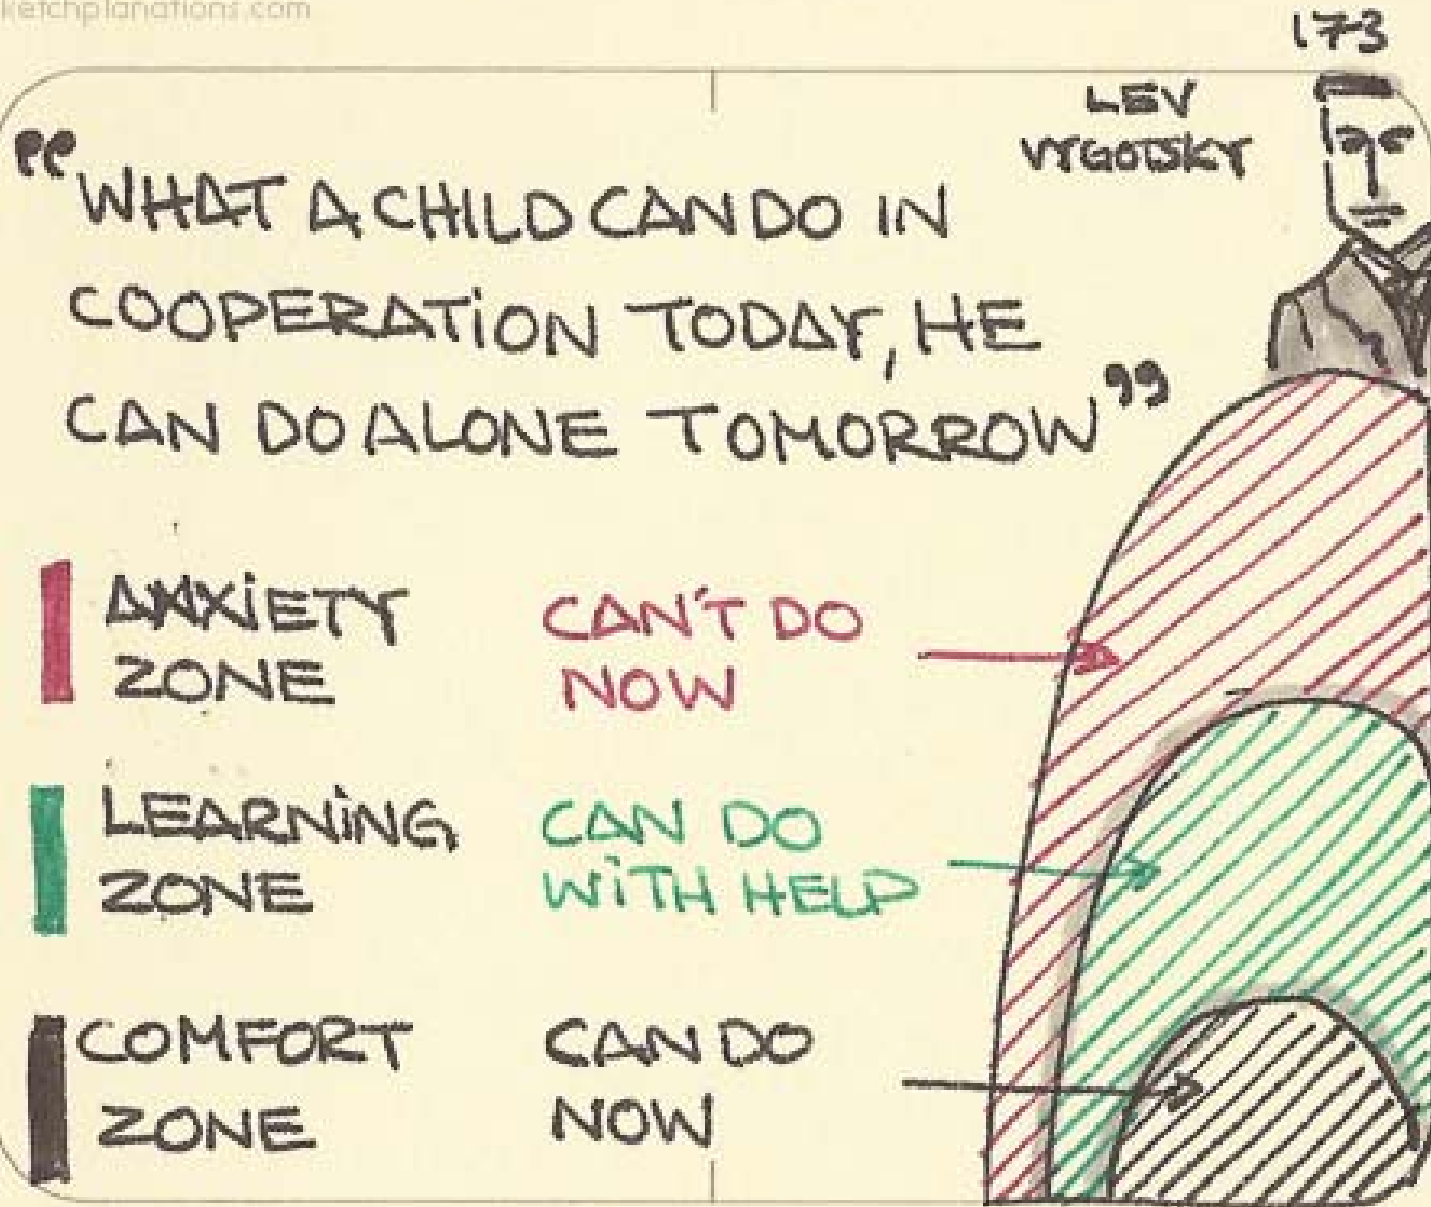 ketchplanations.com
173
LEV
VYGOTSKY
"WHAT A CHILD CAN DO IN
COOPERATION TODAY, HE
CAN DO ALONE TOMORROW"
ANXIETY
ZONE
CAN'T DO
NOW
LEARNING
ZONE
CAN DO
WITH HELP
COMFORT
ZONE
CAN DO
NOW